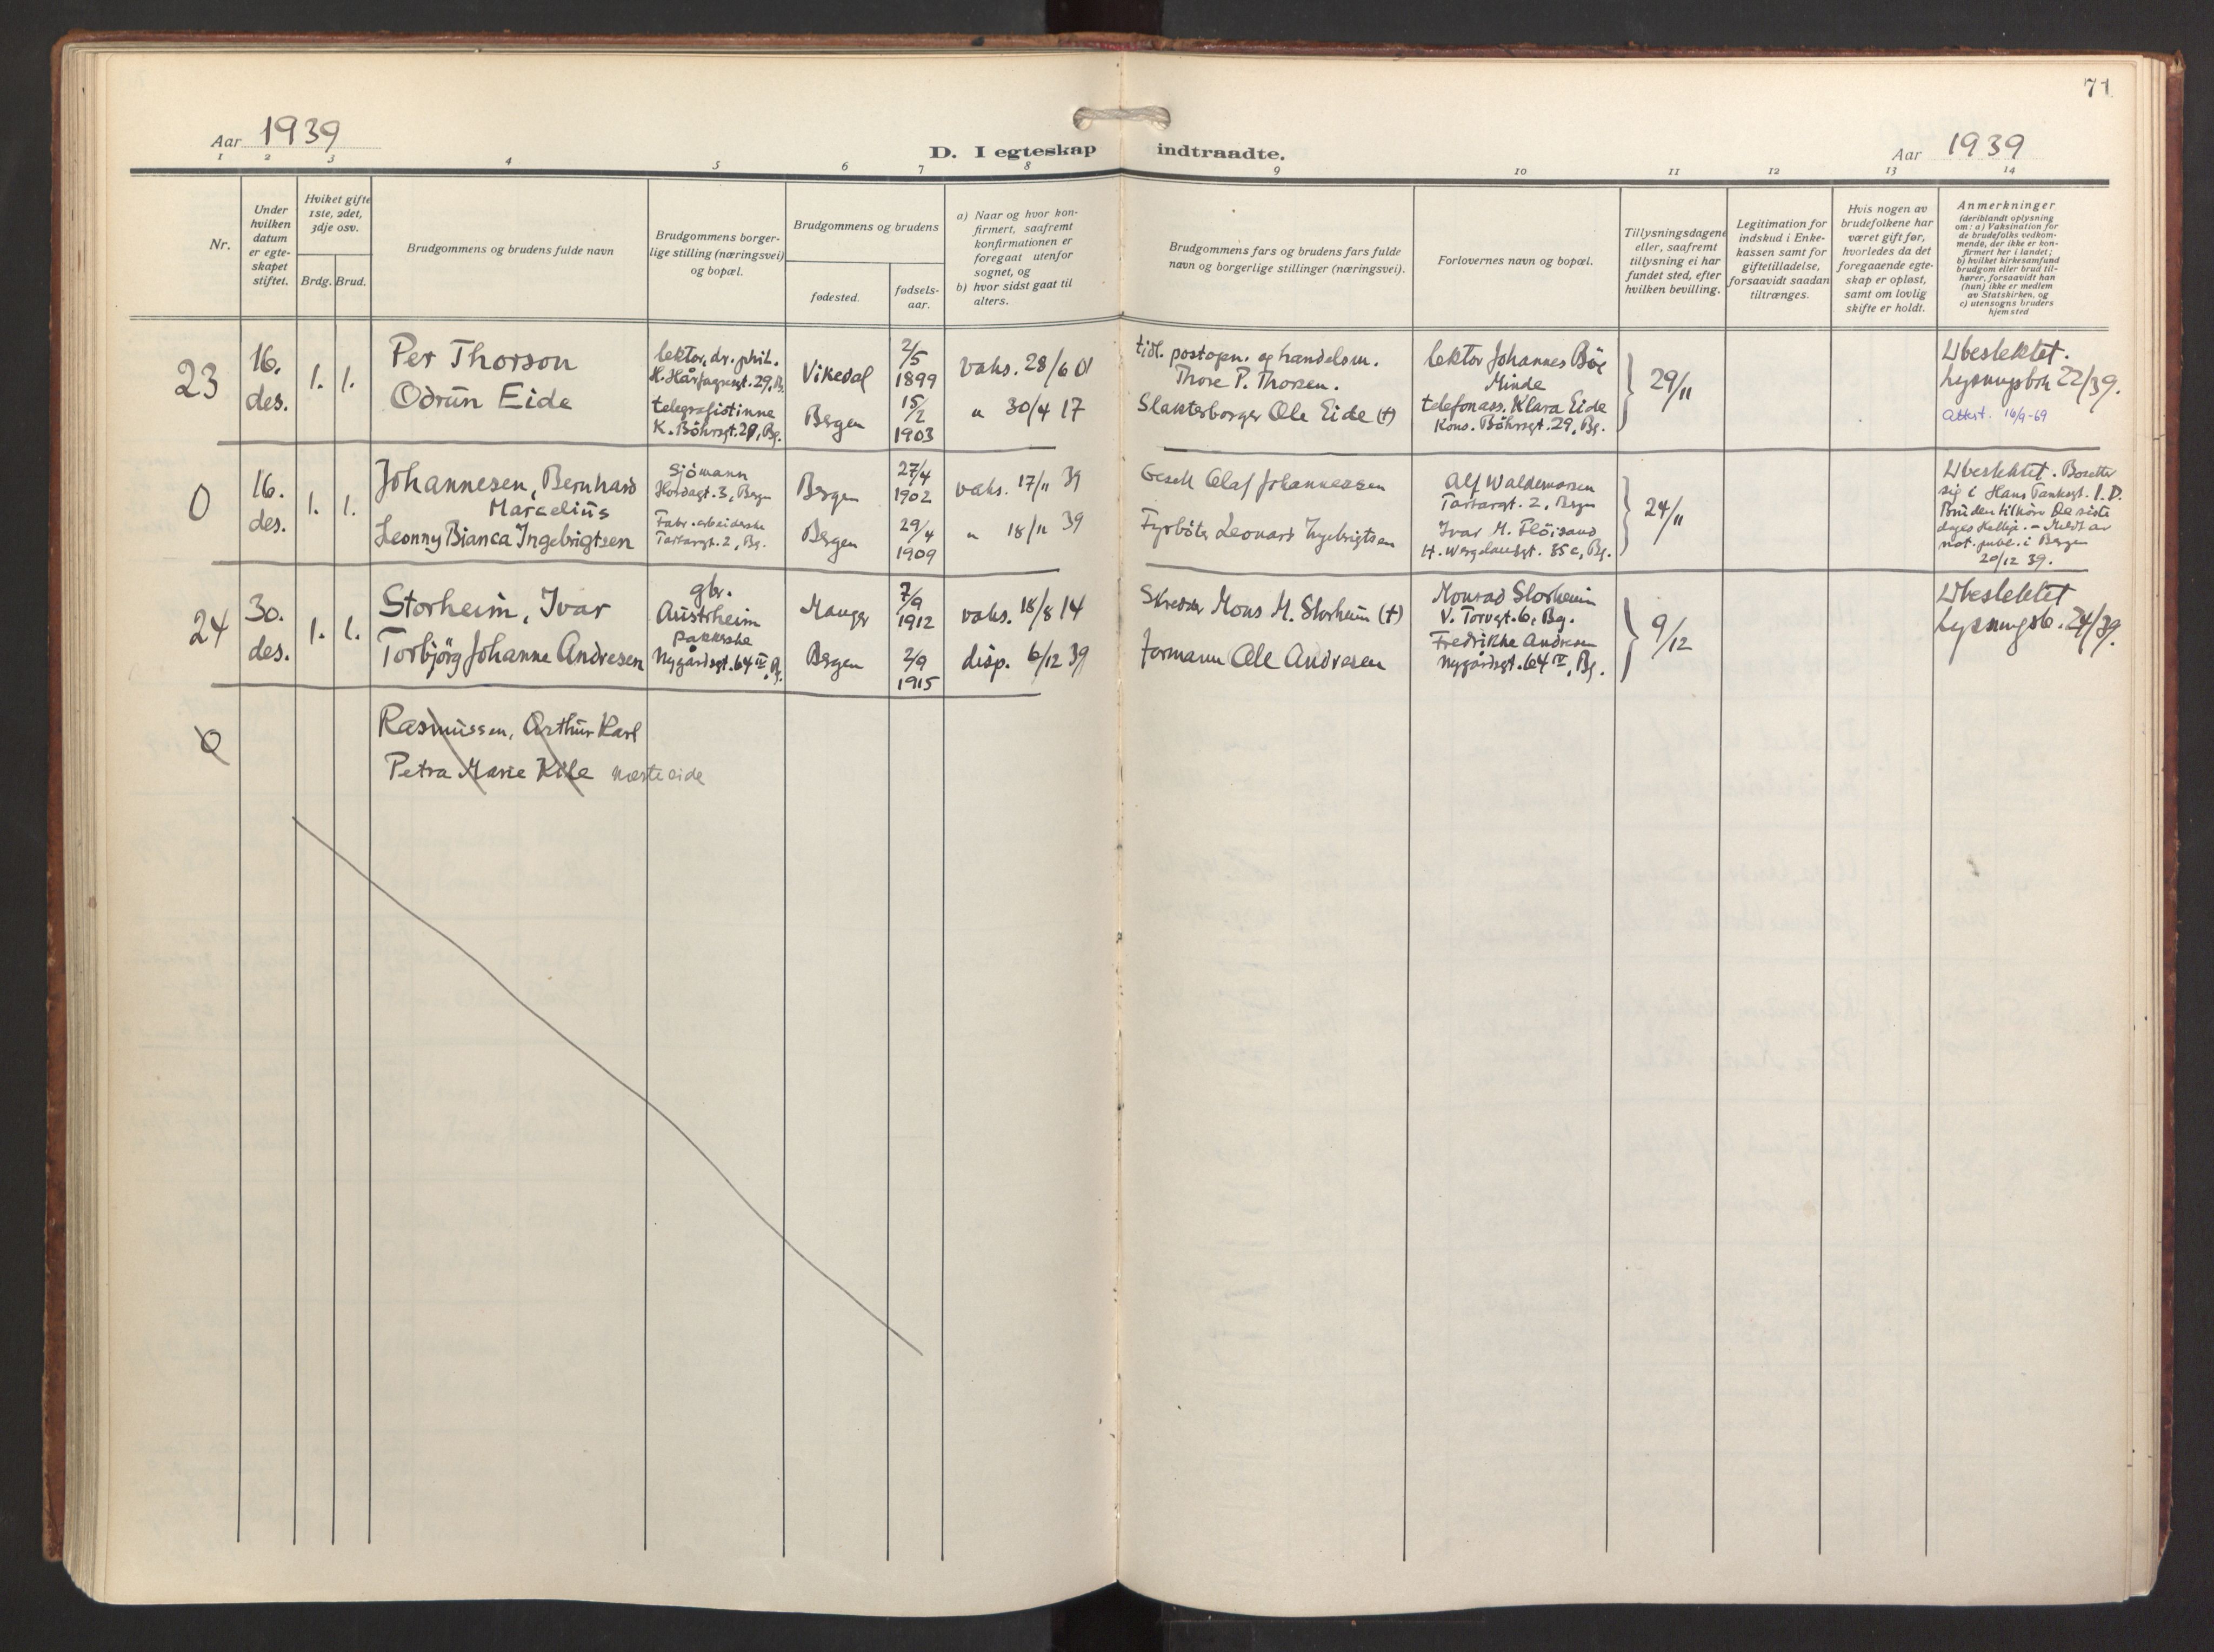 71
Aar 1939
D. I egteskap indtraadte.
Aar 1939
1 2 3 4 5 6 7 8 9 10 11 12 13 14
Nr.
Under
hvilken
datum
er egte-
skapet
stiftet.
Hviket gifte
1ste, 2det,
3dje osv.
Brdg. Brud.
Brudgommens og brudens fulde navn
Brudgommens borger-
lige stilling (næringsvei)
og bopæl.
Brudgommens og brudens
fødested.
fødsels-
aar.
a) Naar og hvor kon-
firmert, saafremt
konfirmationen er
foregaat utenfor
sognet, og
b) hvor sidst gaat til
alters.
Brudgommens fars og brudens fars fulde
navn og borgerlige stillinger (næringsvei).
Forlovernes navn og bopæl.
Tillysningsdagene
eller, saafremt
tillysning ei har
fundet sted, efter
hvilken bevilling.
Legitimation for
indskud i Enke-
kassen samt for
giftetilladelse,
forsaavidt saadan
tiltrænges.
Hvis nogen av
brudefolkene har
været gift før,
hvorledes da det
foregaaende egte-
skap er opløst,
samt om lovlig
skifte er holdt.
Anmerkninger
(deriblandt oplysning
om: a) Vaksination for
de brudefolks vedkom-
mende, der ikke er kon-
firmert her i landet;
b) hvilket kirkesamfund
brudgom eller brud til-
hører, forsaavidt han
(hun) ikke er medlem
av Statskirken, og
c) utensogns bruders
hjemsted
23
16.
des.
1. 1.
Per Thorson
Odrun Eide
lektor, dr. phil.
H. Hårfagresgt. 29, B.
telegrafistinne
K. Böhrsgt. 29, Bg.
Vikedal
Bergen
2/5
1899
15/2
1903
vaks. 28/6 01
" 30/4 17
tidl. postopn. og handelsm.
Thore P. Thorsen.
Slakterborger Ole Eide (†)
lektor Johannes Böe
Minde
telefonass. Klara Eide
Kons. Böhrsgt. 29, Bg.
29/11
Ubeslektet.
Lysningsbok 22/39.
Attest. 16/9-69
0
16.
des.
1. 1.
Johannesen, Bernhard
Marcelius
Leonny Bianca Ingebrigtsen
Sjömann
Hordagt. 3, Bergen
Fabr.arbeiderske
Tartargt. 2, Bg.
Bergen
Bergen
27/4
1902
29/4
1909
vaks. 17/11 39
" 18/11 39
Olaf Johannessen
Fyrböter Leonard Ingebrigtsen
Alf Waldemarsen
Tartargt. 2, Bergen
Ivar M. Flöisand
H. Wergelandsgt. 35 c, Bg.
24/11
Ubeslektet. Bosetter
sig i Hans Tanksgt. 1. D.
Bruden tilhörer De siste
dages Hellige. - Meldt av
not. publ. i Bergen
20/12 39.
24
30.
des.
1. 1.
Storheim, Ivar
Torbjörg Johanne Andresen
gbr.
Austrheim
pakkerske
Nygårdsgt. 64 IV, B.
Manger
Bergen
7/9
1912
2/9
1915
vaks. 18/8 14
disp. 6/12 39
Skredder Mons M. Storheim (†)
Formann Ole Andresen
Monrad Storheim
V. Torvgt. 6, Bg.
Fredrikke Andresen
Nygårdsgt. 64 IV, Bg.
9/12
Ubeslektet
Lysningsb. 24/39.
0
Rasmussen, Arthur Karl
Petra Marie Kile næste side